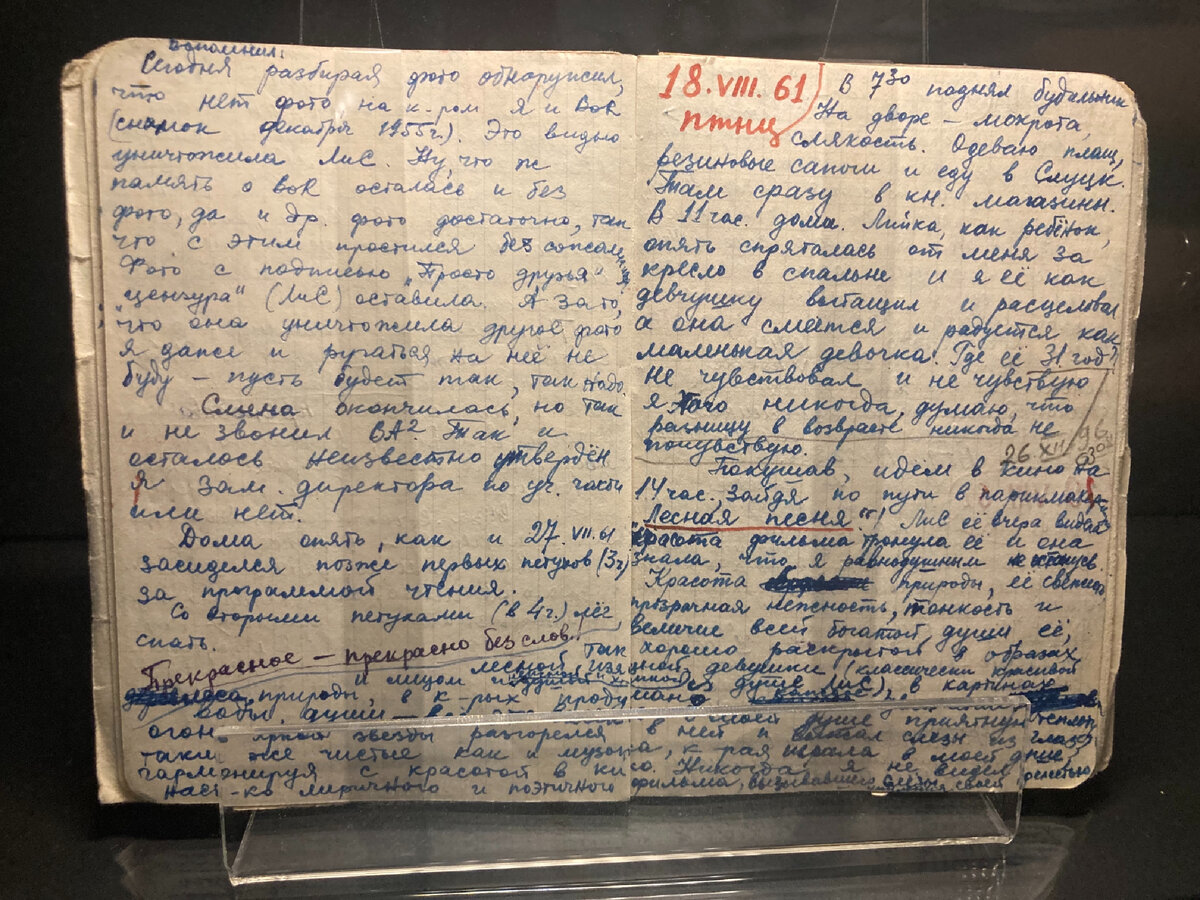 вспомнил:
Сегодня разбирая фото обнаружил,
что нет фото на к-ром я и ВоК
(снимок декабря 1955г.). Это видно
уничтожила ЛиС. Ну, что ж
память о ВоК осталась и без
фото, да и др. фото достаточно, так
что с этим простился без
Фото с подписью „Просто друзья"
„цензура" (ЛиС) оставила. А за то,
что она уничтожила другое фото
я даже и ругаться на неё не
буду – пусть будет так, так надо.
Смена окончилась, но так
и не звонил ВА². Так и
осталось неизвестно утверждён
я зам. директора по уч. части
или нет.
Дома опять, как и 27.VII.61
засиделся позже первых петухов (3ч)
за программой чтения.
Со вторыми петухами (в 4г.) лёг
спать.
Прекрасное – прекрасно без слов...
и лицом
природы, в к-рых
воды, души
огон. яркой звезды разгорелся
таки же чистые как и музыка,
гармонируя с красотой в ки
наст-ко лиричного и поэтичного
18.VIII.61
птнц
В 7³⁰ поднял будильник
На дворе – мокрота,
слякость. Одеваю плащ,
резиновые сапоги и еду в Слуцк.
Там сразу в кн. магазин.
В 11 час. дома. Лийка, как ребёнок,
опять спряталась от меня за
кресло в спальне и я её как
девчушку вытащил и расцеловал
а она смеётся и радуется как
маленькая девочка. Где её 31 год?
Не чувствовал и не чувствую
я его никогда, думаю, что
разницу в возрасте никогда не
почувствую.
26 XII 96
Покушав, идём в кино на
14 час., зайдя по пути в
„Лесная песня". ЛиС её вчера видела
красота фильма тронула её и она
знала, что я равнодушным не останусь
Красота природы, её
прозрачная нежность, тонкость и
величие всей богатой души её,
так хорошо раскрытой в образах
лесной девушки (классически красивой
душе ЛиС), в картинах
моей душе приятную
в нет и слезы из глаз,
к-рая играла в моей душе,
но. Никогда я не видел
фильма, своей